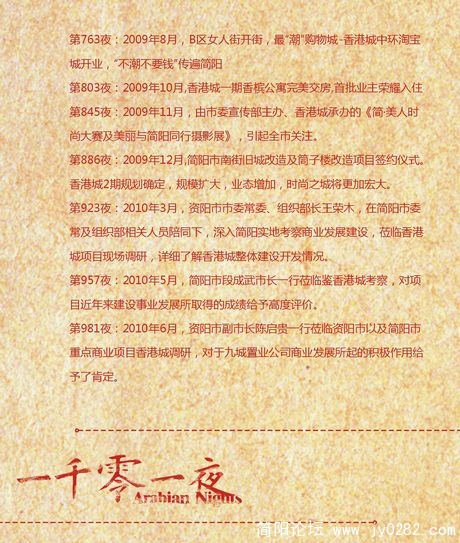 第763夜：2009年8月，B区女人街开街，最“潮”购物城-香港城中环淘宝
城开业，“不潮不要钱”传遍简阳
第803夜：2009年10月,香港城一期香槟公寓完美交房,首批业主荣耀入住
第845夜：2009年11月，由市委宣传部主办、香港城承办的《简·美人时
尚大赛及美丽与简阳同行摄影展》，引起全市关注。
第886夜：2009年12月,简阳市南街旧城改造及筒子楼改造项目签约仪式。
香港城2期规划确定，规模扩大，业态增加，时尚之城将更加宏大。
第923夜：2010年3月，资阳市市委常委、组织部长王荣木，在简阳市市委
常及组织部相关人员陪同下，深入简阳实地考察商业发展建设，莅临香港
城项目现场调研，详细了解香港城整体建设开发情况。
第957夜：2010年5月，简阳市段成武市长一行莅临鉴香港城考察，对项
目近年来建设事业发展所取得的成绩给予高度评价。
第981夜：2010年6月，资阳市副市长陈启贵一行莅临资阳市以及简阳市
重点商业项目香港城调研，对于九城置业公司商业发展所起的积极作用给
予了肯定。
一千零一夜
Arabian Nights
简阳论坛 www.jy0282.com